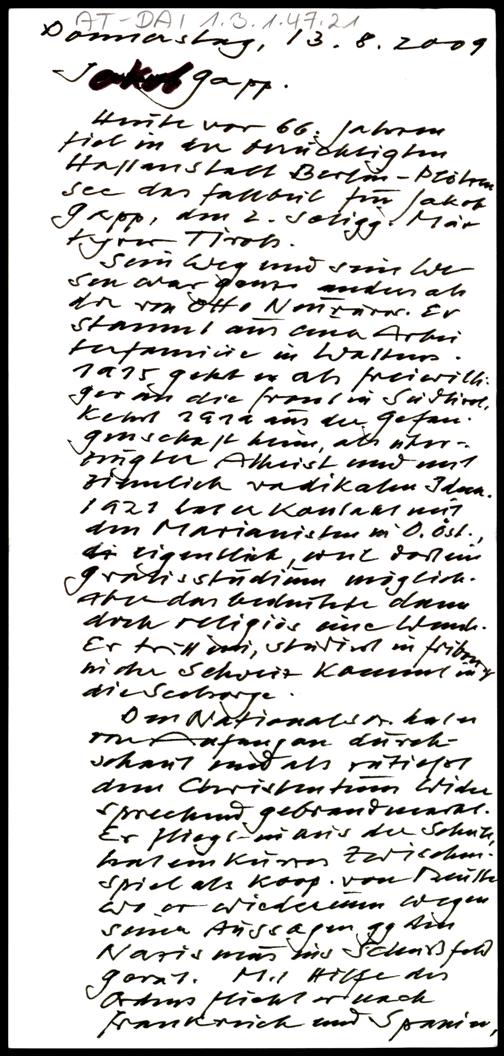 AT-DAI 1.3.1.47.21
Donnerstag, 13.8.2009
Jakob Gapp.
Heute vor 66 Jahren
fiel in der berüchtigten
Haftanstalt Berlin-Plötzen
see das Fallbeil für Jakob
Gapp, den 2. seligg. Mär
tyrer Tirols.
Sein Weg und sein We
sen war ganz anders als
der von Otto Neururer. Er
stammt aus einer Arbei
terfamilie in Wattens.
1915 geht er als freiwilli-
ger an die Front in Südtirol,
kehrt 1919 aus der Gefan-
genschaft heim, als über-
zeugter Atheist und mit
ziemlich radikalen Ideen.
1921 hat er Kontakt mit
den Marianisten in O.Öst.,
eigentlich, weil dort ein
Gratisstudium möglich.
Aber das bedeutete dann
doch religiös eine Wende.
Er tritt ein, studiert in Fribourg
in der Schweiz kommt in
die Seelsorge.
Den Nationalsoz. hat er
von Anfang an durch-
schaut und als zutiefst
dem Christentum wider
sprechend gebrandmarkt.
Er fliegt in aus der Schule,
hat ein kurzes Zwischen-
spiel als Koop. von
wo er wiederum wegen
seiner Aussagen gg den
Nazismus ins Schußfeld
gerät. Mit Hilfe des
Ordens flieht er nach
Frankreich und Spanien,